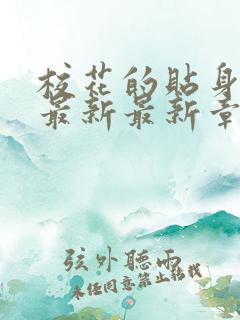 校花的貼身
最新最新章
弦外聽雨
未經同意禁止轉載